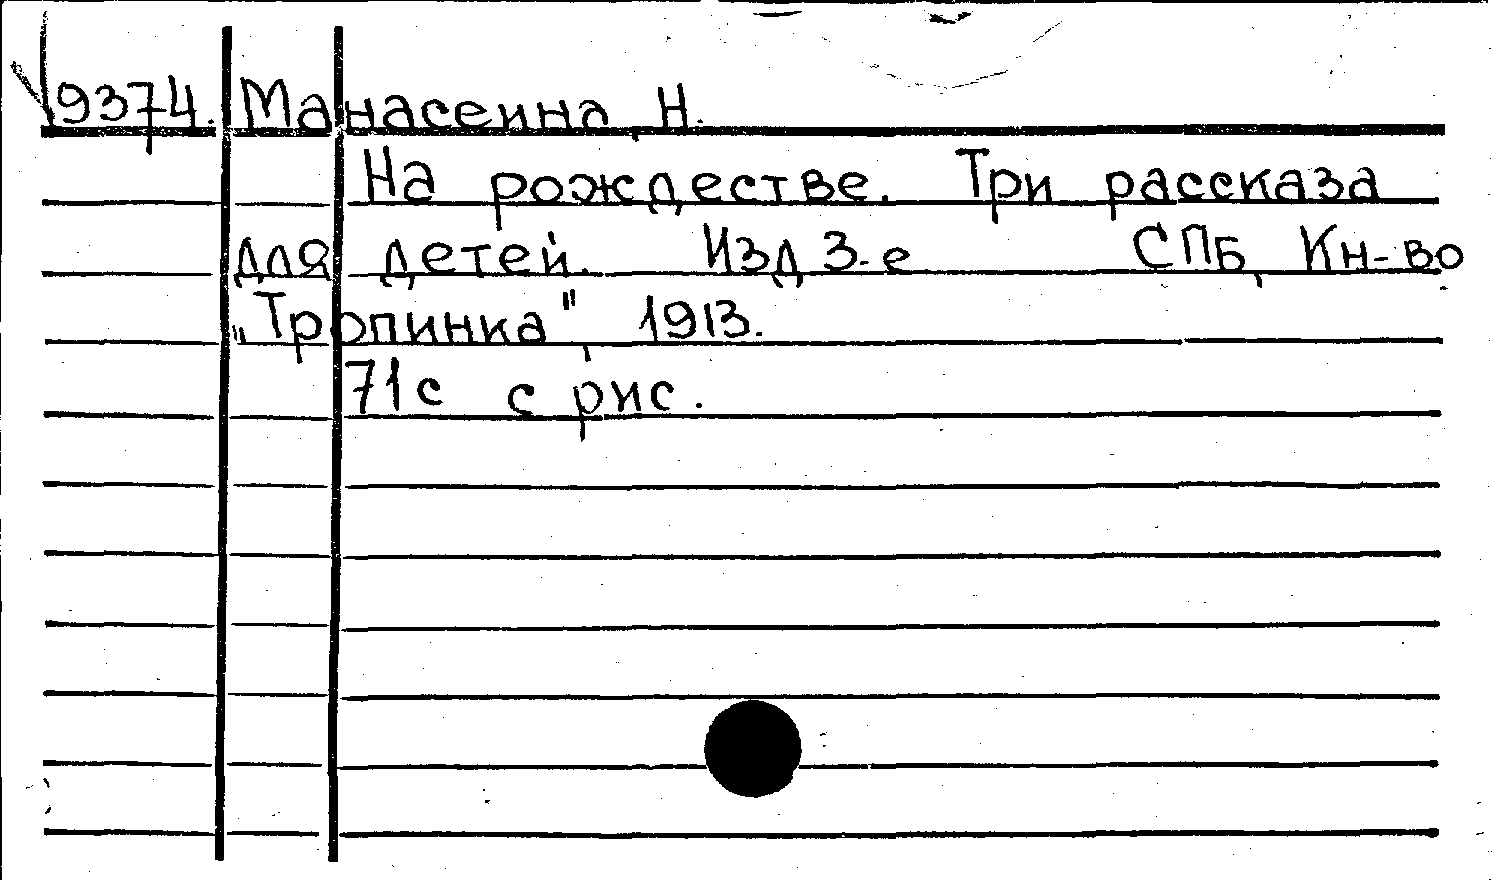 9374. Манасеина, Н.
На рождестве. Три рассказа
для детей. Изд 3-е СПБ, Кн-во
„Тропинка", 1913.
71с с рис.